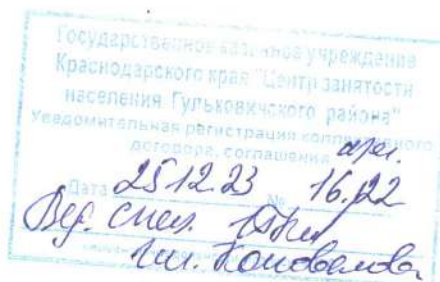 Государственное казенное учреждение
Краснодарского края "Центр занятости
населения Гулькевичского района"
Уведомительная регистрация коллективного
договора, соглашения
Дата 25.12.23 № 16/22
Вед. спец.
Коновалова